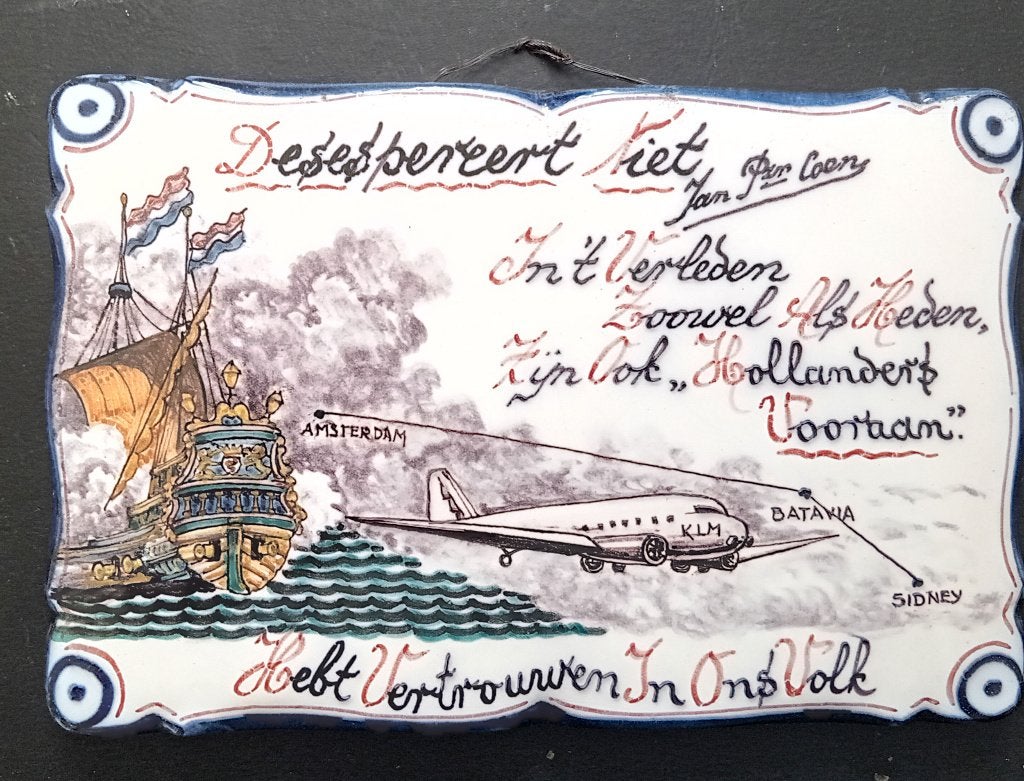 Desespereert Niet
Jan Pzn Coen
In 't Verleden
Zoowel Als Heden,
Zijn Ook „Hollanders
Vooraan".
AMSTERDAM
BATAVIA
KLM
SIDNEY
Hebt Vertrouwen In Ons Volk